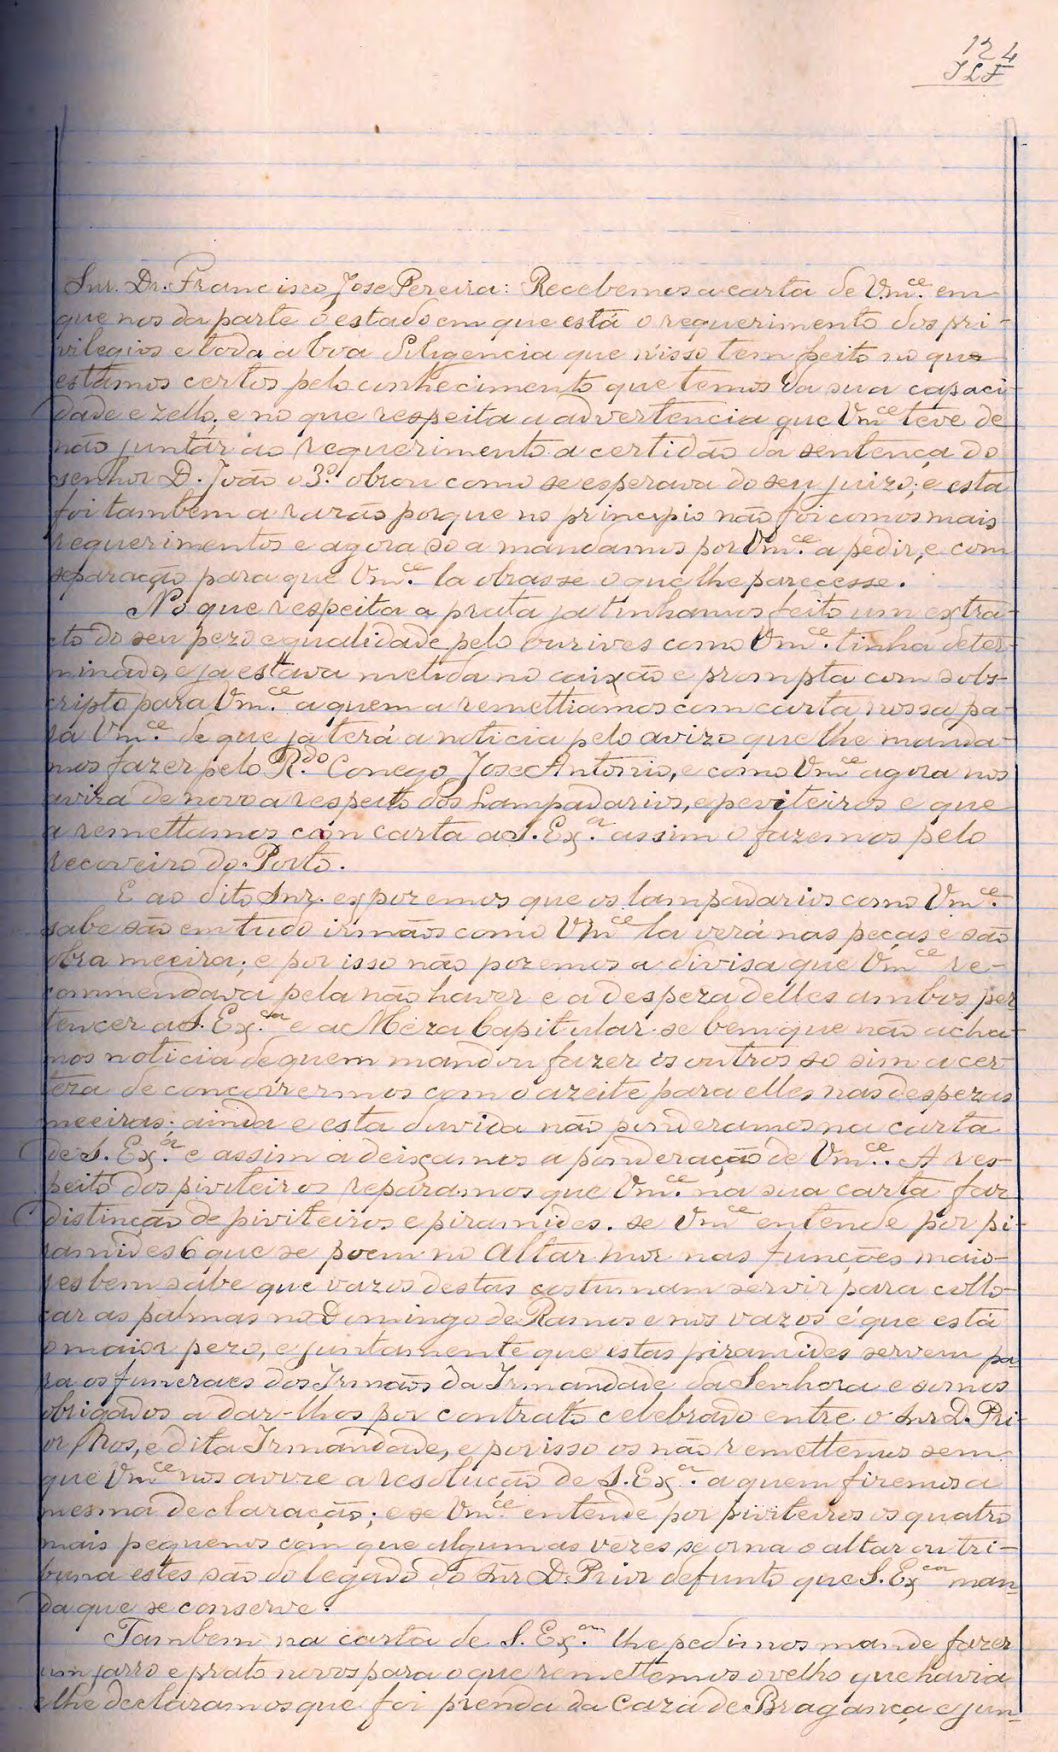 124
JLF
Snr. Dr. Francisco Jose Pereira: Recebemos a carta de Vm.ce em
que nos da parte o estado em que está o requerimento dos pri-
vilegios e toda a boa deligencia que n'isso tem feito no que
estamos certos pelo conhecimento que temos da sua capaci-
dade e zello, e no que respeita a advertencia que Vm.ce teve de
não juntar ao requerimento a certidão da sentença do
senhor D. João o 3.º obrou como se esperava do seu juizo; e esta
foi tambem a razão porque no principio não foi com os mais
requerimentos e agora so a mandamos por Vm.ce a pedir, e com
separação para que Vm.ce la obrasse o que lhe parecesse.
No que respeita a prata ja tinhamos feito um extra-
cto do seu pezo e qualidade pelo ourives como Vm.ce tinha deter-
minado, e ja estava metida no caixão e prompta com sobs-
cripto para Vm.ce a quem a remettiamos com carta nossa pa-
ra Vm.ce de que ja terá a noticia pelo avizo que lhe manda-
mos fazer pelo R.do Conego Jose Antonio, e como Vm.ce agora nos
aviza de novo a respeito dos Lampadarios, e peviteiros e que
a remettamos com carta ao S. Ex.a assim o fazemos pelo
recoveiro do Porto.
E ao dito Snr. exporemos que os lampadarios como Vm.ce
sabe são em tudo irmãos como Vm.ce la verá nas peças e são
obra meeira; e por isso não pozemos a divisa que Vm.ce re-
commendava pela não haver e a despeza delles ambos per
tencer a S. Ex.cia e a Meza Capitular se bem que não acha-
mos noticia de quem mandou fazer os outros so sim a cer-
teza de concorrermos com o azeite para elles nas despezas
meeiras; ainda e esta duvida não ponderamos na carta
de S. Ex.a e assim a deixamos a ponderação de Vm.ce. A res-
peito dos piviteiros reparamos que Vm.ce na sua carta faz
distinção de piviteiros e piramides. se Vm.ce entende por pi-
ramides 6 que se poem no Altar mor nas funções maio-
res bem sabe que vazos destas costumam servir para collo-
car as palmas no Domingo de Ramos e nos vazos é que está
o maior pezo, e juntamente que estas piramides servem pa
ra os funeraes dos Irmãos da Irmandade da Senhora e somos
obrigados a dar-lhos por contrato celebrado entre o Snr D. Pri-
or Nos, e dita Irmandade, e por isso os não remettemos sem
que Vm.ce nos avize a resolução de S. Ex.a a quem fizemos a
mesma declaração; e se Vm.ce entende por piviteiros os quatro
mais pequenos com que algumas vezes se orna o altar ou tri-
buna estes são do legado do Snr D. Prior defunto que S. Ex.cia man-
da que se conserve.
Tambem na carta de S. Ex.cia lhe pedimos mande fazer
um jarro e prato novos para o que remettemos o velho que havia
e lhe declaramos que foi prenda da Caza de Bragança e jun-